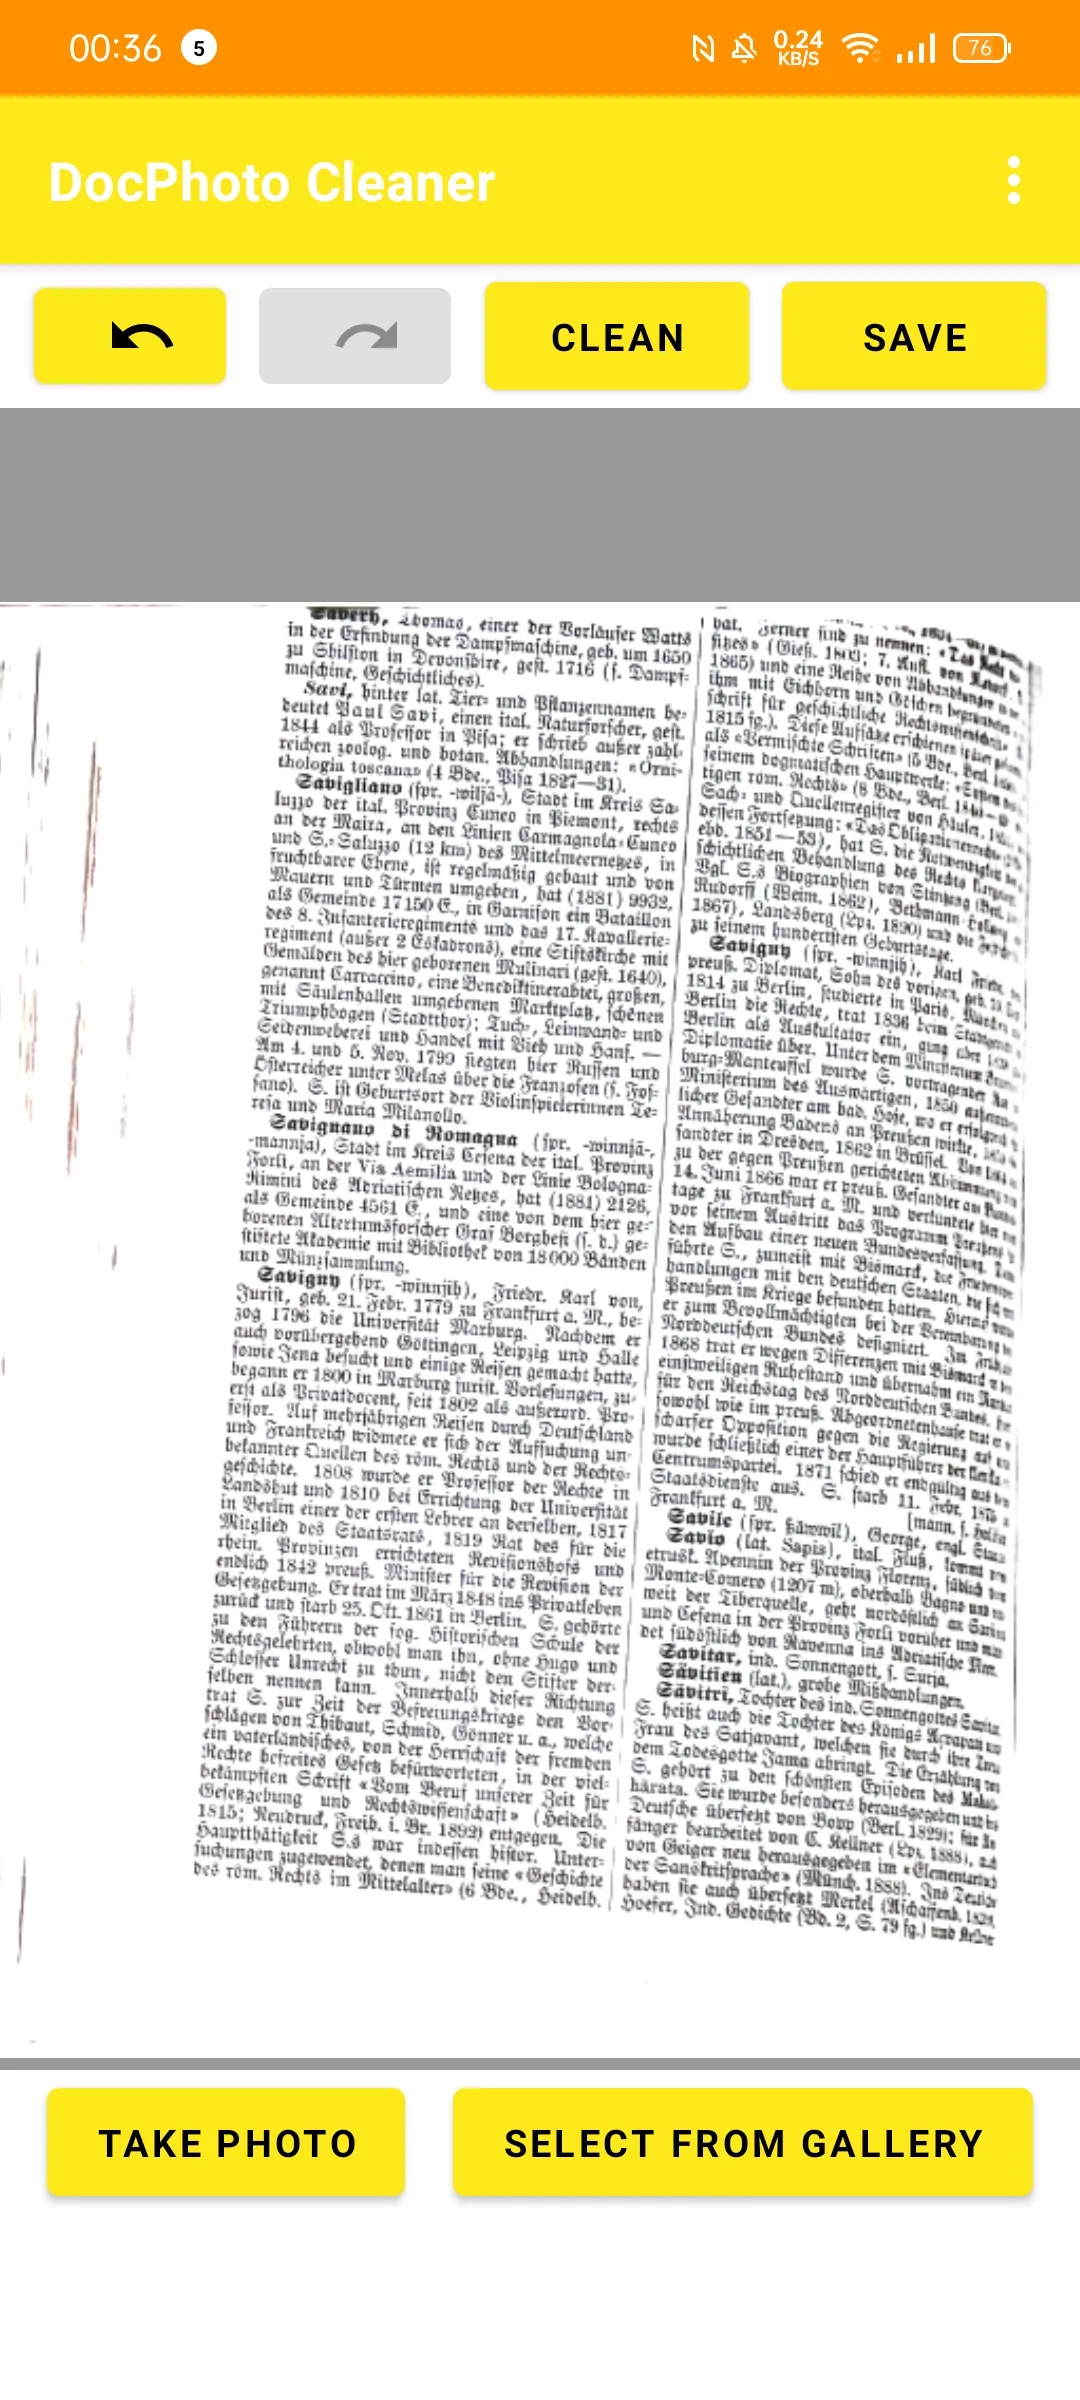 00:36 5 0.24 KB/S 76
DocPhoto Cleaner
CLEAN SAVE
Savery, Thomas, einer der Vorläufer Watts
in der Erfindung der Dampfmaschine, geb. um 1650
zu Shilston in Devonshire, gest. 1716 (s. Dampf-
maschine, Geschichtliches).
Savi, hinter lat. Tier- und Pflanzennamen be-
deutet Paul Savi, einen ital. Naturforscher, gest.
1844 als Professor in Pisa; er schrieb außer zahl-
reichen zoolog. und botan. Abhandlungen: «Orni-
thologia toscana» (4 Bde., Pisa 1827—31).
Savigliano (spr. -wiljā-), Stadt im Kreis Sa-
luzzo der ital. Provinz Cuneo in Piemont, rechts
an der Maira, an den Linien Carmagnola-Cuneo
und S.-Saluzzo (12 km) des Mittelmeernetzes, in
fruchtbarer Ebene, ist regelmäßig gebaut und von
Mauern und Türmen umgeben, hat (1881) 9932,
als Gemeinde 17150 E., in Garnison ein Bataillon
des 8. Infanterieregiments und das 17. Kavallerie-
regiment (außer 2 Eskadrons), eine Stiftskirche mit
Gemälden des hier geborenen Mulinari (gest. 1640),
genannt Carraccino, eine Benediktinerabtei, großen,
mit Säulenhallen umgebenen Marktplatz, schönen
Triumphbogen (Stadtthor); Tuch-, Leinwand- und
Seidenweberei und Handel mit Vieh und Hanf. —
Am 4. und 5. Nov. 1799 siegten hier Russen und
Österreicher unter Melas über die Franzosen (s. Fos-
sano). S. ist Geburtsort der Violinspielerinnen Te-
resa und Maria Milanollo.
Savignano di Romagna (spr. -winnjā-,
-mannja), Stadt im Kreis Cesena der ital. Provinz
Forlì, an der Via Aemilia und der Linie Bologna-
Rimini des Adriatischen Netzes, hat (1881) 2126,
als Gemeinde 4561 E., und eine von dem hier ge-
borenen Altertumsforscher Graf Borghesi (s. d.) ge-
stiftete Akademie mit Bibliothek von 18000 Bänden
und Münzsammlung.
Savigny (spr. -winnjih), Friedr. Karl von,
Jurist, geb. 21. Febr. 1779 zu Frankfurt a. M., be-
zog 1796 die Universität Marburg. Nachdem er
auch vorübergehend Göttingen, Leipzig und Halle
sowie Jena besucht und einige Reisen gemacht hatte,
begann er 1800 in Marburg jurist. Vorlesungen, zu-
erst als Privatdocent, seit 1802 als außerord. Pro-
fessor. Auf mehrjährigen Reisen durch Deutschland
und Frankreich widmete er sich der Aufsuchung un-
bekannter Quellen des röm. Rechts und der Rechts-
geschichte. 1808 wurde er Professor der Rechte in
Landshut und 1810 bei Errichtung der Universität
in Berlin einer der ersten Lehrer an derselben, 1817
Mitglied des Staatsrats, 1819 Rat des für die
rhein. Provinzen errichteten Revisionshofs und
endlich 1842 preuß. Minister für die Revision der
Gesetzgebung. Er trat im März 1848 ins Privatleben
zurück und starb 25. Okt. 1861 in Berlin. S. gehörte
zu den Führern der sog. Historischen Schule der
Rechtsgelehrten, obwohl man ihn, ohne Hugo und
Schlosser Unrecht zu thun, nicht den Stifter der-
selben nennen kann. Innerhalb dieser Richtung
trat S. zur Zeit der Befreiungskriege den Vor-
schlägen von Thibaut, Schmid, Gönner u. a., welche
ein vaterländisches, von der Herrschaft der fremden
Rechte befreites Gesetz befürworteten, in der viel-
bekämpften Schrift «Vom Beruf unserer Zeit für
Gesetzgebung und Rechtswissenschaft» (Heidelb.
1815; Neudruck, Freib. i. Br. 1892) entgegen. Die
Hauptthätigkeit S.s war indessen histor. Unter-
suchungen zugewendet, denen man seine «Geschichte
des röm. Rechts im Mittelalter» (6 Bde., Heidelb.
hat. Ferner sind zu nennen: «Das Recht
sitzes» (Gieß. 1803; 7. Aufl. von
1865) und eine Reihe von Abhandlungen
ihm mit Eichhorn und Göschen
schrift für geschichtliche Rechtswissenschaft»
1815 fg.). Diese Aufsätze erschienen
als «Vermischte Schriften» (5 Bde., Berl.
seinem dogmatischen Hauptwerke: «System
tigen röm. Rechts» (8 Bde., Berl.
Sach- und Quellenregister von Heuser,
dessen Fortsetzung: «Das Obligationenrecht»
ebd. 1851—53), hat S. die
schichtlichen Behandlung des Rechts
Vgl. S.s Biographien von Stintzing (Berl.
Rudorff (Weim. 1862), Bethmann-
1867), Landsberg (Lpz. 1890) und die
zu seinem hundertsten Geburtstage.
Savigny (spr. -winnjih), Karl Friedr.
preuß. Diplomat, Sohn des vorigen, geb.
1814 zu Berlin, studierte in Paris,
Berlin die Rechte, trat 1836 beim
Berlin als Auskultator ein, ging aber
Diplomatie über. Unter dem Ministerium
burg-Manteuffel wurde S. vortragender
Ministerium des Auswärtigen, 1850
licher Gesandter am bad. Hofe, wo er
Annäherung Badens an Preußen wirkte,
sandter in Dresden, 1862 in Brüssel.
zu der gegen Preußen gerichteten Abstimmung
14. Juni 1866 war er preuß. Gesandter am
tage zu Frankfurt a. M. und verkündete
vor seinem Austritt das Programm Preußens
den Aufbau einer neuen Bundesverfassung.
führte S., zumeist mit Bismarck, die
handlungen mit den deutschen Staaten, die sich
Preußen im Kriege befunden hatten. Hierauf
er zum Bevollmächtigten bei der
Norddeutschen Bundes designiert. Im
1868 trat er wegen Differenzen mit Bismarck
einstweiligen Ruhestand und übernahm ein
für den Reichstag des Norddeutschen Bundes.
sowohl wie im preuß. Abgeordnetenhause trat er
scharfer Opposition gegen die Regierung auf
wurde schließlich einer der Hauptführer der
Centrumspartei. 1871 schied er endgültig aus
Staatsdienste aus. S. starb 11. Febr.
Frankfurt a. M. [mann, s.
Savile (spr. ßäwwil), George, engl.
Savio (lat. Sapis), ital. Fluß,
etrusk. Apennin der Provinz Florenz, südlich
Monte-Comero (1207 m), oberhalb Bagno
weit der Tiberquelle, geht nordöstlich an
und Cesena in der Provinz Forlì vorüber und
det südöstlich von Ravenna ins Adriatische
Savitar, ind. Sonnengott, s. Surja.
Sävitien (lat.), grobe Mißhandlungen.
Sāvitrī, Tochter des ind. Sonnengottes
S. heißt auch die Tochter des Königs
Frau des Satjavant, welchen sie durch ihre
dem Todesgotte Jama abringt. Die Erzählung
S. gehört zu den schönsten Episoden des
bhārata. Sie wurde besonders herausgegeben und
Deutsche übersetzt von Bopp (Berl. 1829); für
fänger bearbeitet von C. Kellner (Lpz. 1888),
von Geiger neu herausgegeben im
der Sanskritsprache» (Münch. 1888). Ins
haben sie auch übersetzt Merkel (Aschaffenb.
Hoefer, Ind. Gedichte (Bd. 2, S. 79 fg.) und
TAKE PHOTO SELECT FROM GALLERY